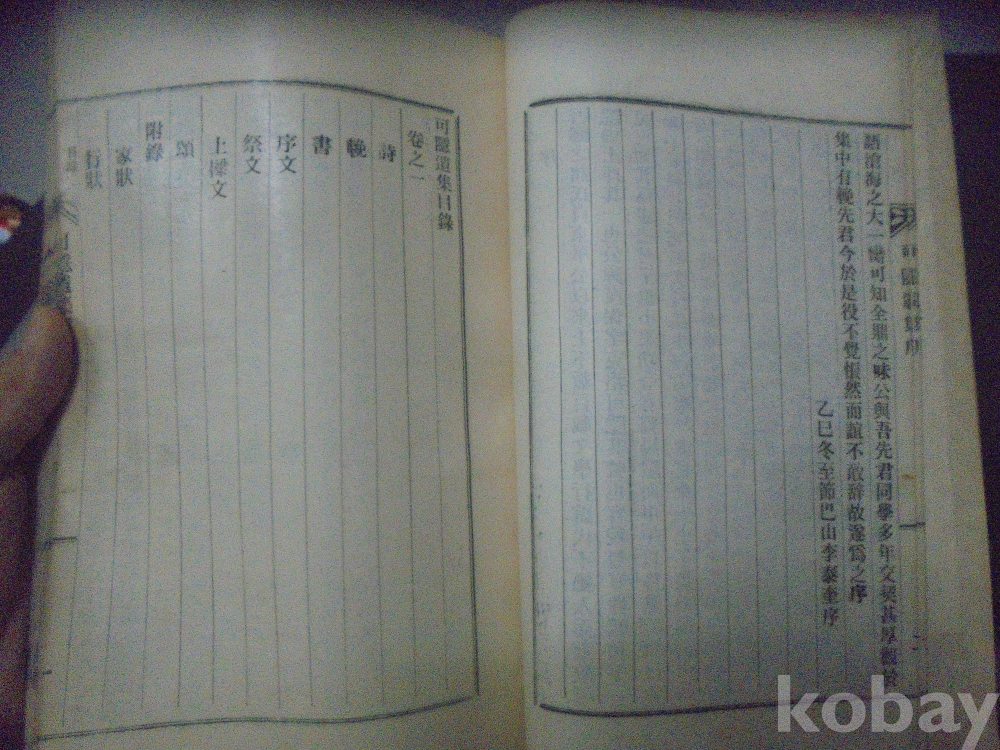 語滄海之大一臠可知全鼎之味公與吾先君同學多年交契甚厚觀於
集中有輓先君今於是役不覺悵然而誼不敢辭故遂爲之序
乙巳冬至節巴山李泰奎序
可隱遺集目錄
卷之一
詩
輓
書
序文
祭文
上樑文
頌
附錄
家狀
行狀
kobay